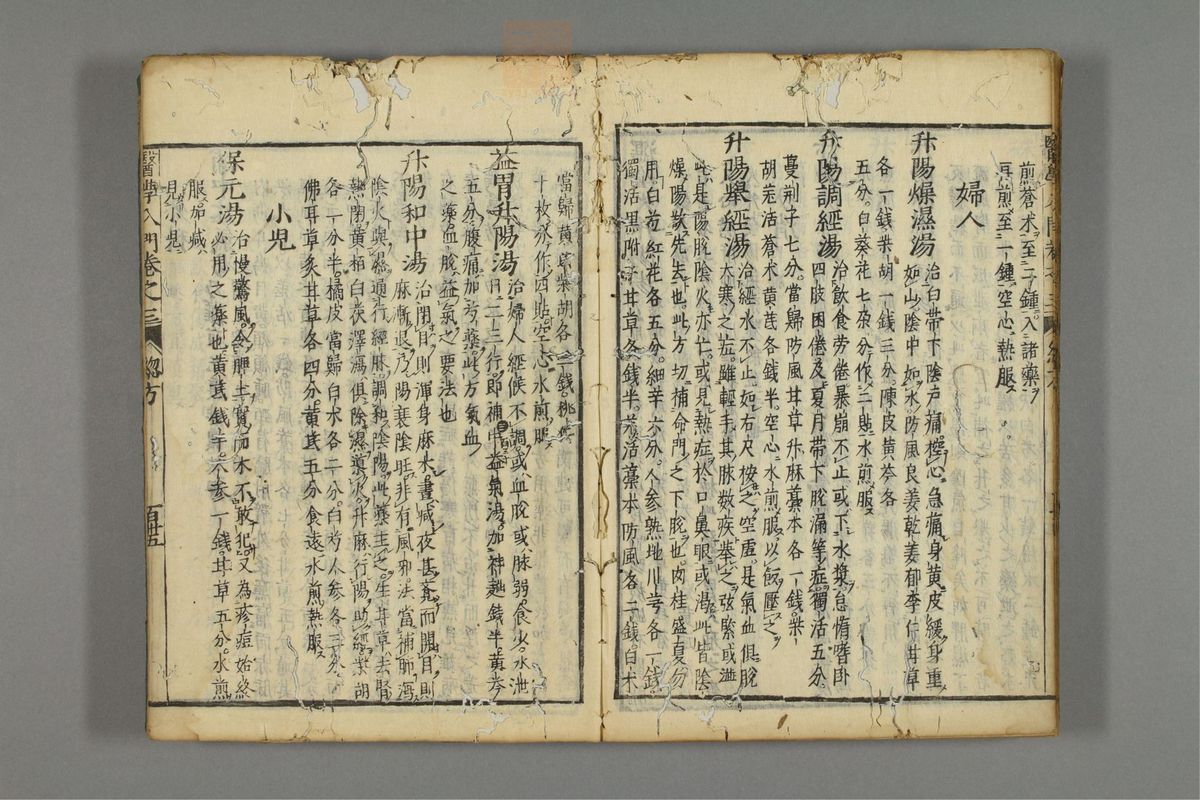 煎蒼朮至二鍾入諸藥
再煎至一鍾空心熱服
婦人
升陽燥濕湯 治白帶下陰戶痛控心急痛身黃皮緩身重
如山陰中如水防風良姜乾姜郁李仁甘草
各一錢柴胡一錢三分陳皮黃芩各
五分白葵花七朶分作二貼水煎服
升陽調經湯 治飲食勞倦暴崩不止或下水漿怠惰嗜卧
四肢困倦及夏月帶下脫漏等症獨活五分
蔓荆子七分當歸防風甘草升麻藁本各一錢柴
胡羌活蒼朮黃芪各錢半空心水煎服以飯壓之
升陽舉經湯 治經水不止如右尺按之空虛是氣血俱脫
大寒之症雖輕手其脉數疾舉之弦緊或澁
此是陽脫陰火亦亡或見熱症於口鼻眼或渴此皆陰
燥陽散先去也此方切補命門之下脫也肉桂盛夏勿
用白芍紅花各五分細辛六分人參熟地川芎各一錢
獨活黑附子甘草各錢半羌活藁本防風各二錢白朮
當歸黃芪柴胡各三錢桃仁
十枚分作四貼空心水煎服
益胃升陽湯 治婦人經候不調或血脫或脉弱食少水泄
日二三行即補中益氣湯加神麯錢半黃芩
五分腹痛加芍藥此方氣血
之藥血脫益氣之要法也
升陽和中湯 治閉目則渾身麻木晝減夜甚覺而開目則
麻漸退乃陽衰陰旺非有風邪法當補肺瀉
陰火與濕通行經脉調和陰陽此藥主之生甘草去腎
熱閉黃栢白茯澤瀉俱除濕導火升麻行陽助經柴胡
各一分半橘皮當歸白朮各二分白芍人參各三分
佛耳草炙甘草各四分黃芪五分食遠水煎熱服
小児
保元湯 治慢驚風食脾土寬而木不敢犯又為疹痘始終
必用之藥也黃芪錢半人參一錢甘草五分水煎
服加減
見小児
醫學入門卷之三 總方 百十五